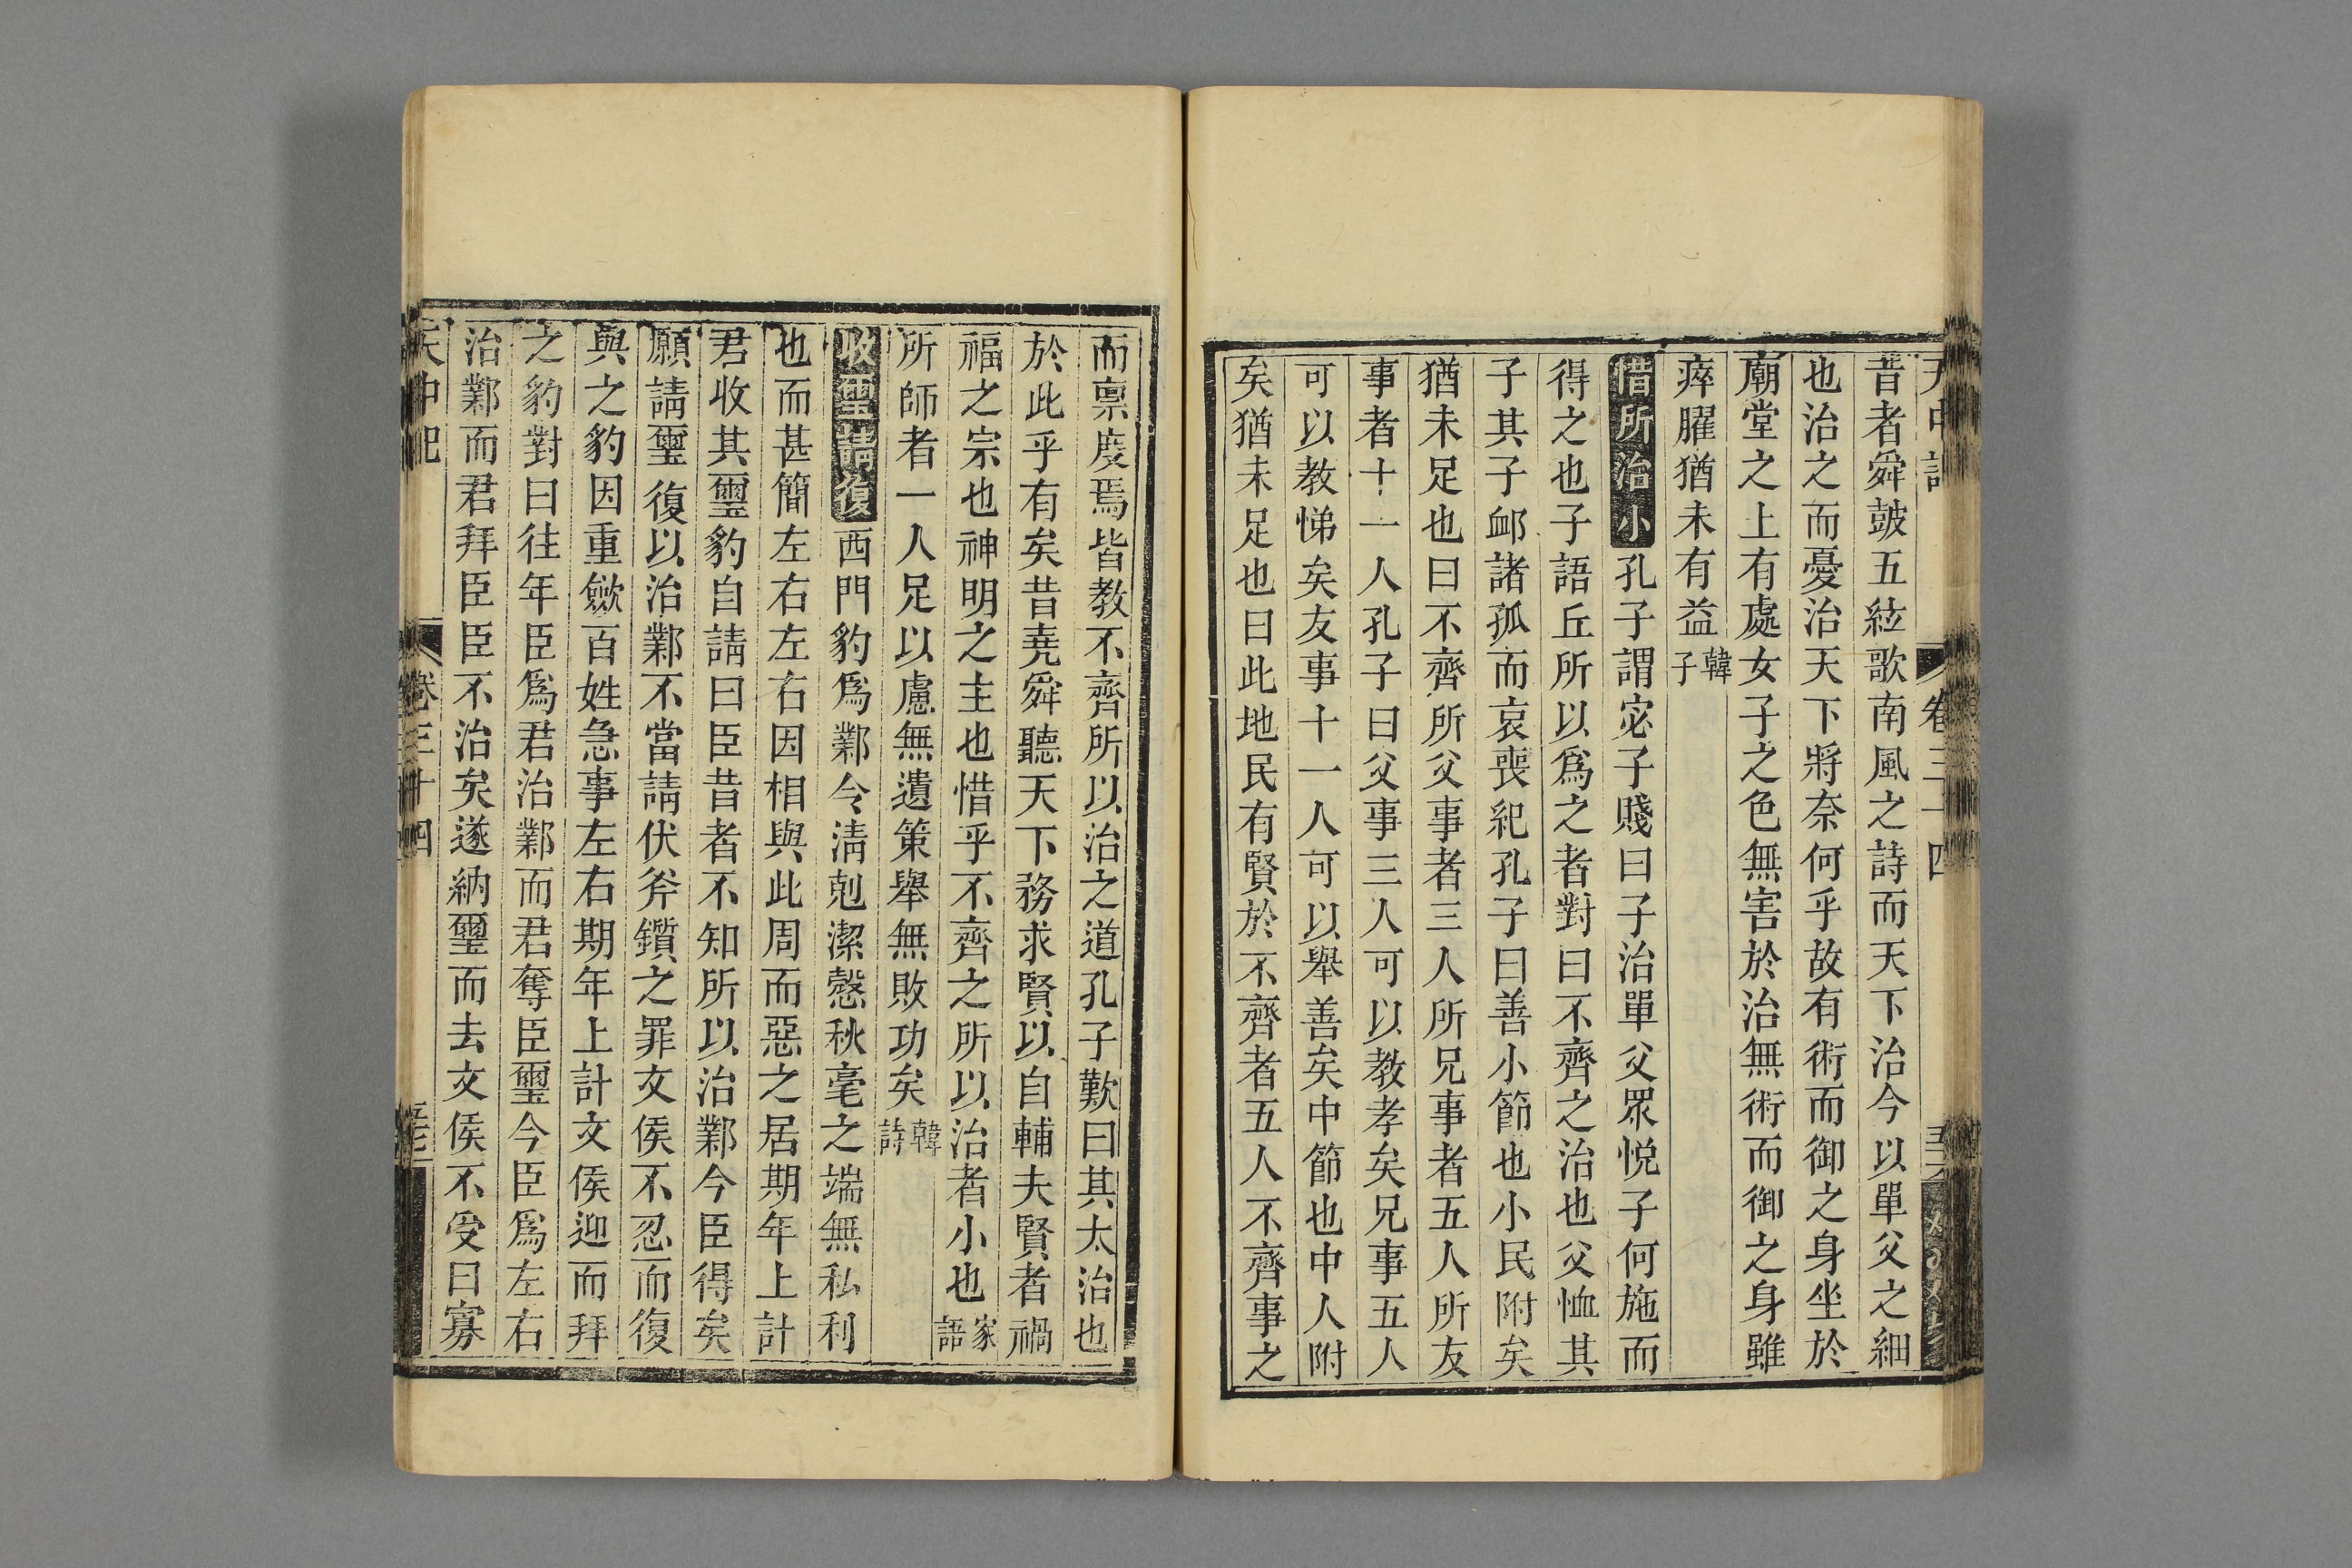 昔者舜皷五絃歌南風之詩而天下治今以單父之細
也治之而憂治天下將奈何乎故有術而御之身坐於
廟堂之上有處女子之色無害於治無術而御之身雖
瘁臞猶未有益韓子
惜所治小孔子謂宓子賤曰子治單父眾悦子何施而
得之也子語丘所以為之者對曰不齊之治也父恤其
子其子卹諸孤而哀喪紀孔子曰善小節也小民附矣
猶未足也曰不齊所父事者三人所兄事者五人所友
事者十一人孔子曰父事三人可以教孝矣兄事五人
可以教悌矣友事十一人可以舉善矣中節也中人附
矣猶未足也曰此地民有賢於不齊者五人不齊事之
而禀度焉皆教不齊所以治之道孔子歎曰其太治也
於此乎有矣昔堯舜聽天下務求賢以自輔夫賢者禍
福之宗也神明之主也惜乎不齊之所以治者小也家語
所師者一人足以慮無遺策舉無敗功矣韓詩
收璽請復西門豹爲鄴令清剋潔慤秋毫之端無私利
也而甚簡左右左右因相與此周而惡之居期年上計
君收其璽豹自請曰臣昔者不知所以治鄴今臣得矣
願請璽復以治鄴不當請伏斧鑕之罪文侯不忍而復
與之豹因重斂百姓急事左右期年上計文侯迎而拜
之豹對曰往年臣爲君治鄴而君奪臣璽今臣爲左右
治鄴而君拜臣臣不治矣遂納璽而去文侯不受曰寡
天中記 卷三十四